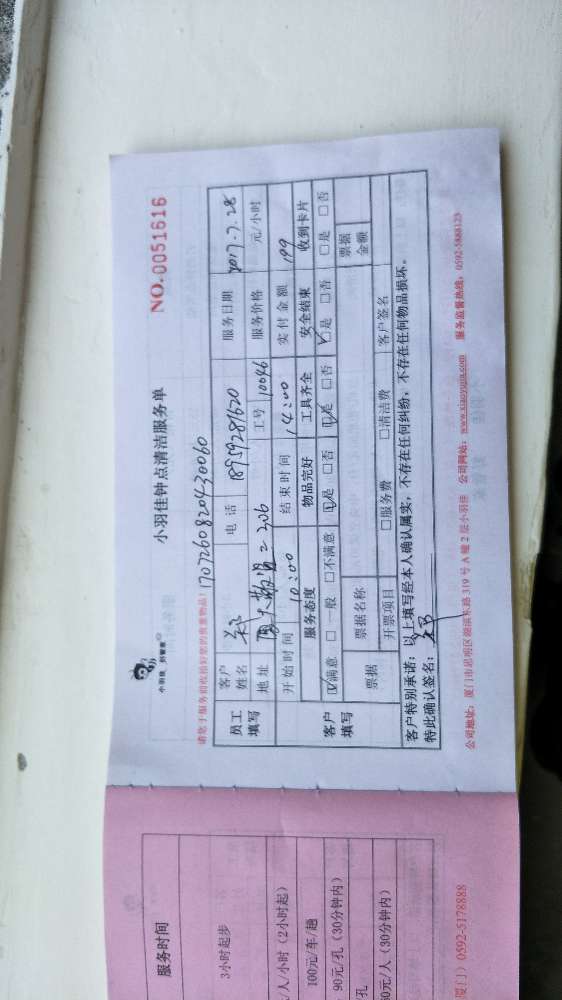 小羽佳 好管家
小羽佳钟点清洁服务单
NO.0051616
请您于服务前收拾好您的贵重物品!
1707260820430060
员工填写
客户姓名
电话 18959281620
服务日期 2017.7.28
地址
206
工号 10046
服务价格 元/小时
开始时间 10:00
结束时间 14:00
实付金额 199
客户填写
服务态度 物品完好 工具齐全 安全结束 收到卡片
☑满意 □一般 □不满意 ☑是 □否 ☑是 □否 ☑是 □否 □是 □否
票据 票据名称 票据金额
开票项目 □服务费 □清洁费 客户签名
客户特别承诺:以上填写经本人确认属实,不存在任何纠纷,不存在任何物品损坏。
特此确认签名:
公司地址:厦门市思明区湖滨东路319号A幢2层小羽佳 公司网站:www.xiaoyujia.com 服务监督热线:0592-5888123
服务时间
3小时起步
/人/小时(2小时起)
100元/车/趟
90元/孔(30分钟内)
孔
0元/人(30分钟内)
厦门)0592-5178888